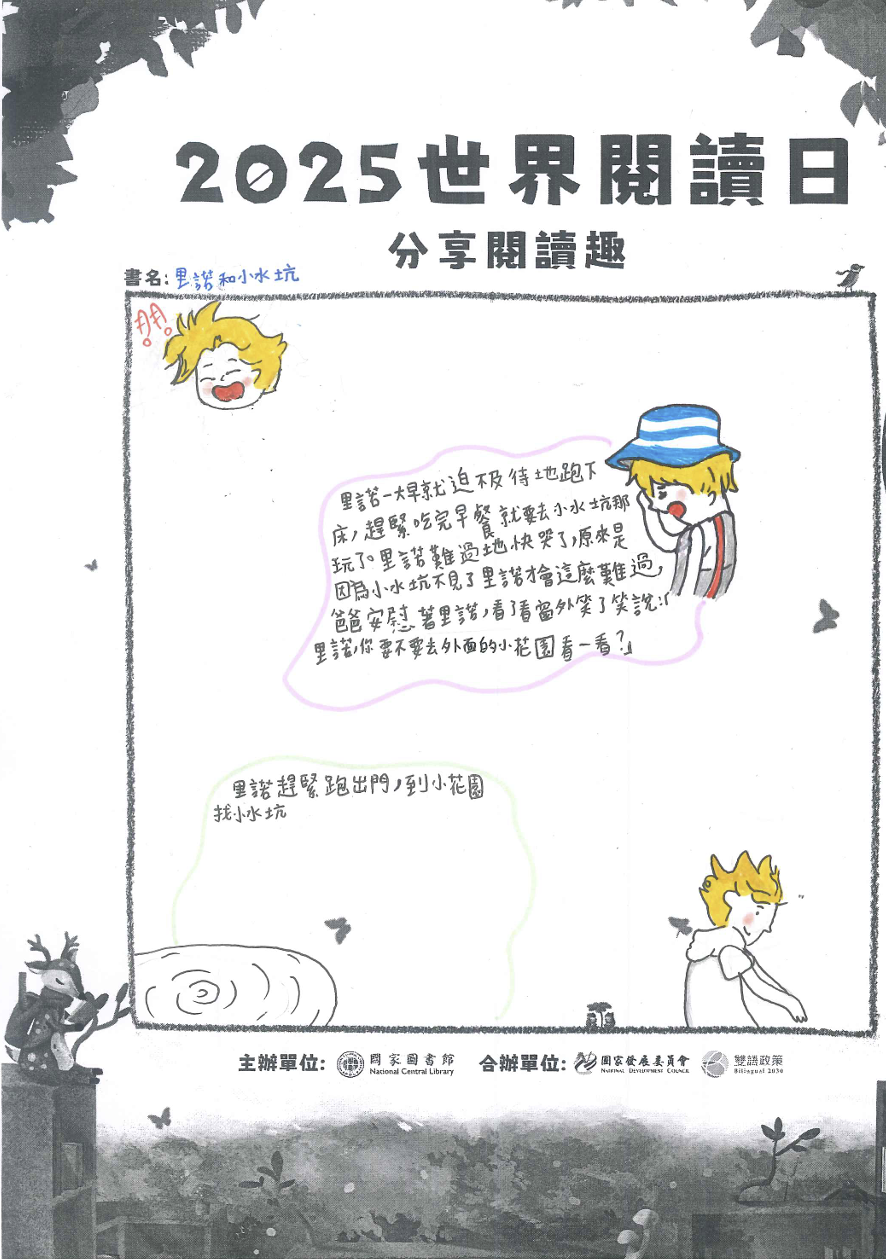 2025世界閱讀日
分享閱讀趣
書名:里諾和小水坑
里諾一大早就迫不及待地跑下
床,趕緊吃完早餐就要去小水坑那
玩了。里諾難過地快哭了,原來是
因為小水坑不見了里諾才會這麼難過,
爸爸安慰著里諾,看了看窗外笑了笑說:「
里諾,你要不要去外面的小花園看一看?」
里諾趕緊跑出門,到小花園
找小水坑
主辦單位: 國家圖書館 合辦單位: 國家發展委員會 雙語政策
National Central Library NATIONAL DEVELOPMENT COUNCIL Bilingual 2030